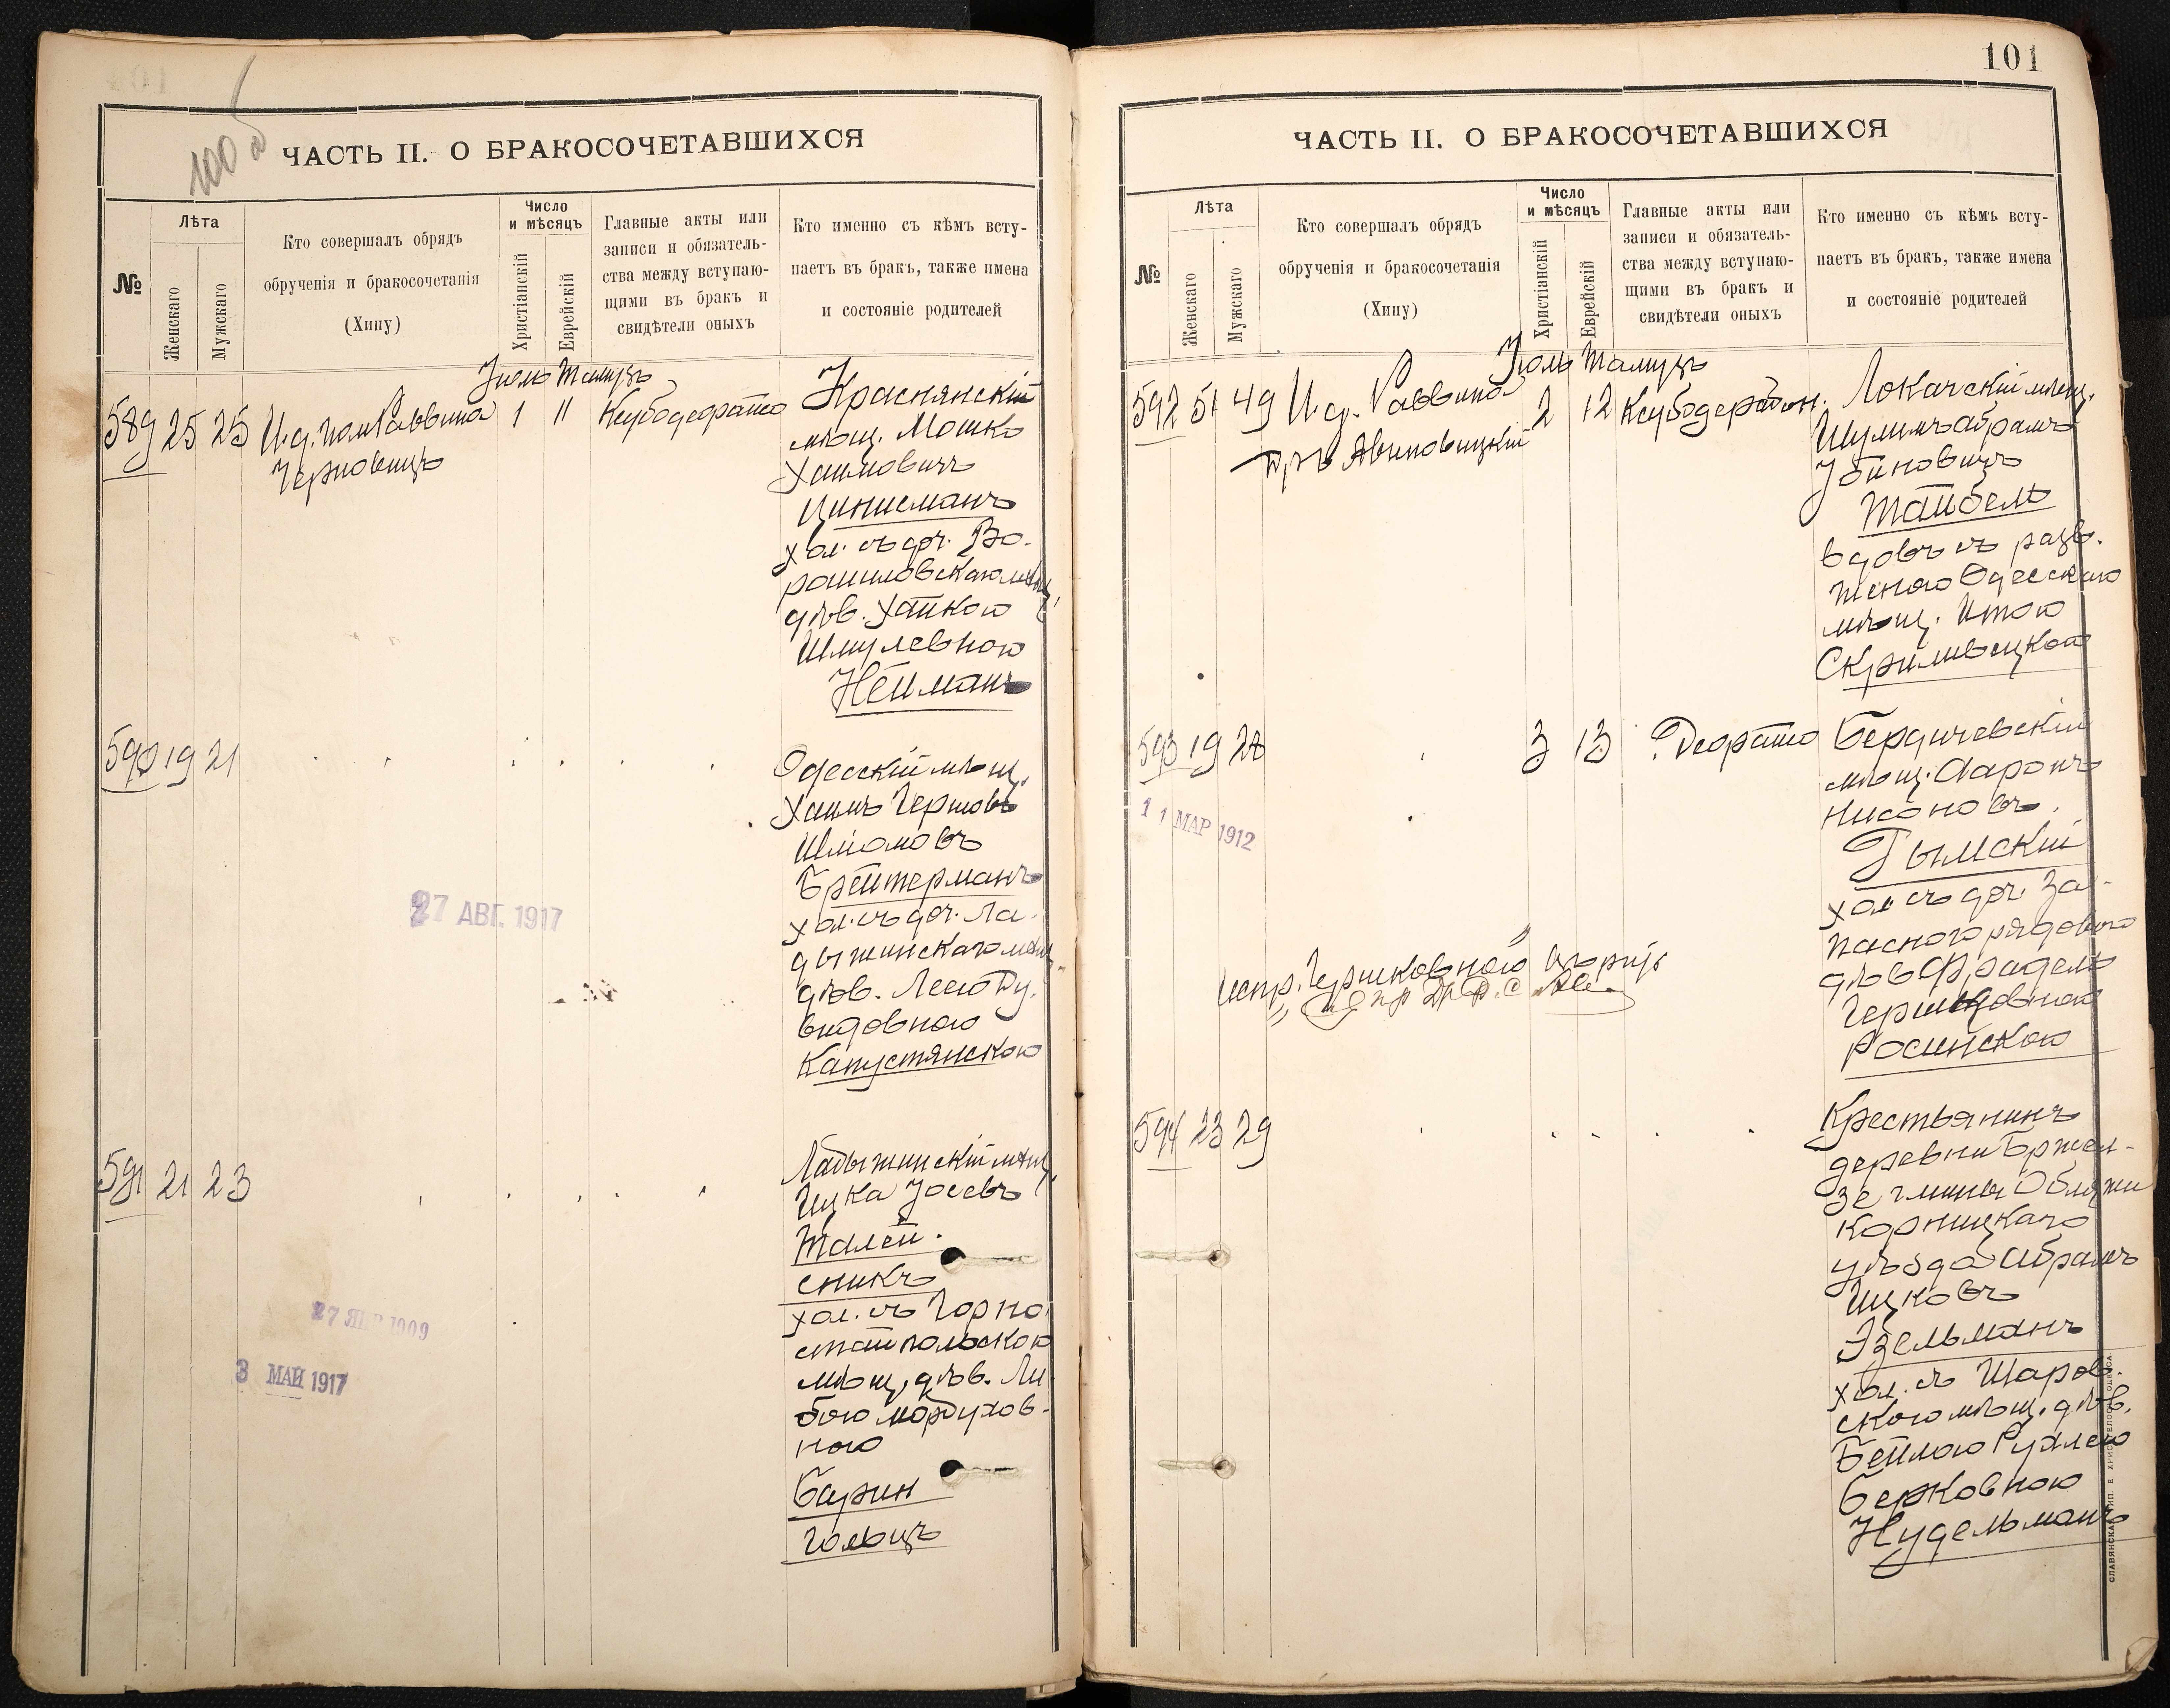 100 об
ЧАСТЬ II. О БРАКОСОЧЕТАВШИХСЯ
№
Лѣта
Женскаго
Мужскаго
Кто совершалъ обрядъ
обрученія и бракосочетанія
(Хипу)
Число
и мѣсяцъ
Христіанскій
Еврейскій
Главные акты или
записи и обязатель-
ства между вступаю-
щими въ бракъ и
свидѣтели оныхъ
Кто именно съ кѣмъ всту-
паетъ въ бракъ, также имена
и состояніе родителей
Іюль Тамузъ
589 25 25 И.д. пом Раввина 1 11 Ксубодерайсо
Черновицъ
Краснянскій
мѣщ. Мошко
Хаимовичъ
Цинисманъ
хол. съ доч. Во-
рошиловскаго мѣщ.
дѣв. Хайкою
Шмулевною
Нейманъ
590 19 21
Одесскій мѣщ.
Хаимъ Гершовъ
Шліомовъ
Брейтерманъ
хол. съ доч. Ла-
дыжинскаго мѣщ.
дѣв. Леею Ду-
видовною
Капустянскою
27 АВГ. 1917
591 21 23
Ладыжинскій мѣщ.
Ицка Іосевъ
Талей-
сникъ
хол. съ Горно-
стайпольскою
мѣщ. дѣв. Ли-
бою Мордухов-
ною
Барин
гольцъ
27 ЯНВ 1909
3 МАЙ 1917
101
ЧАСТЬ II. О БРАКОСОЧЕТАВШИХСЯ
№
Лѣта
Женскаго
Мужскаго
Кто совершалъ обрядъ
обрученія и бракосочетанія
(Хипу)
Число
и мѣсяцъ
Христіанскій
Еврейскій
Главные акты или
записи и обязатель-
ства между вступаю-
щими въ бракъ и
свидѣтели оныхъ
Кто именно съ кѣмъ всту-
паетъ въ бракъ, также имена
и состояніе родителей
Іюль Тамузъ
592 51 49 И.д. Раввина 2 12 Ксубодерайсо
Д-ръ Авиновицкій
Локачскій мѣщ.
Шулимъ Абрамъ
Убиновичъ
Тайбель
вдовъ съ разв.
женою Одесскаго
мѣщ. Итою
Скриливецкой
593 19 28 3 13 Деорайсо
Бердичевскій
мѣщ. Ааронъ
Нисоновъ
Гымскій
хол съ доч. За-
паснаго рядового
дѣв Фрадель
Гершковною
Росинскою
11 МАР 1912
испр. „Гершковною"
594 23 29
Крестьянинъ
деревни Бржел-
зе гмины Облязи
Корницкаго
уѣзда Абрамъ
Ицковъ
Эзельманъ
хол. съ Шаров-
скою мѣщ. дѣв.
Бейлою Рухлею
Берковною
Нудельманъ